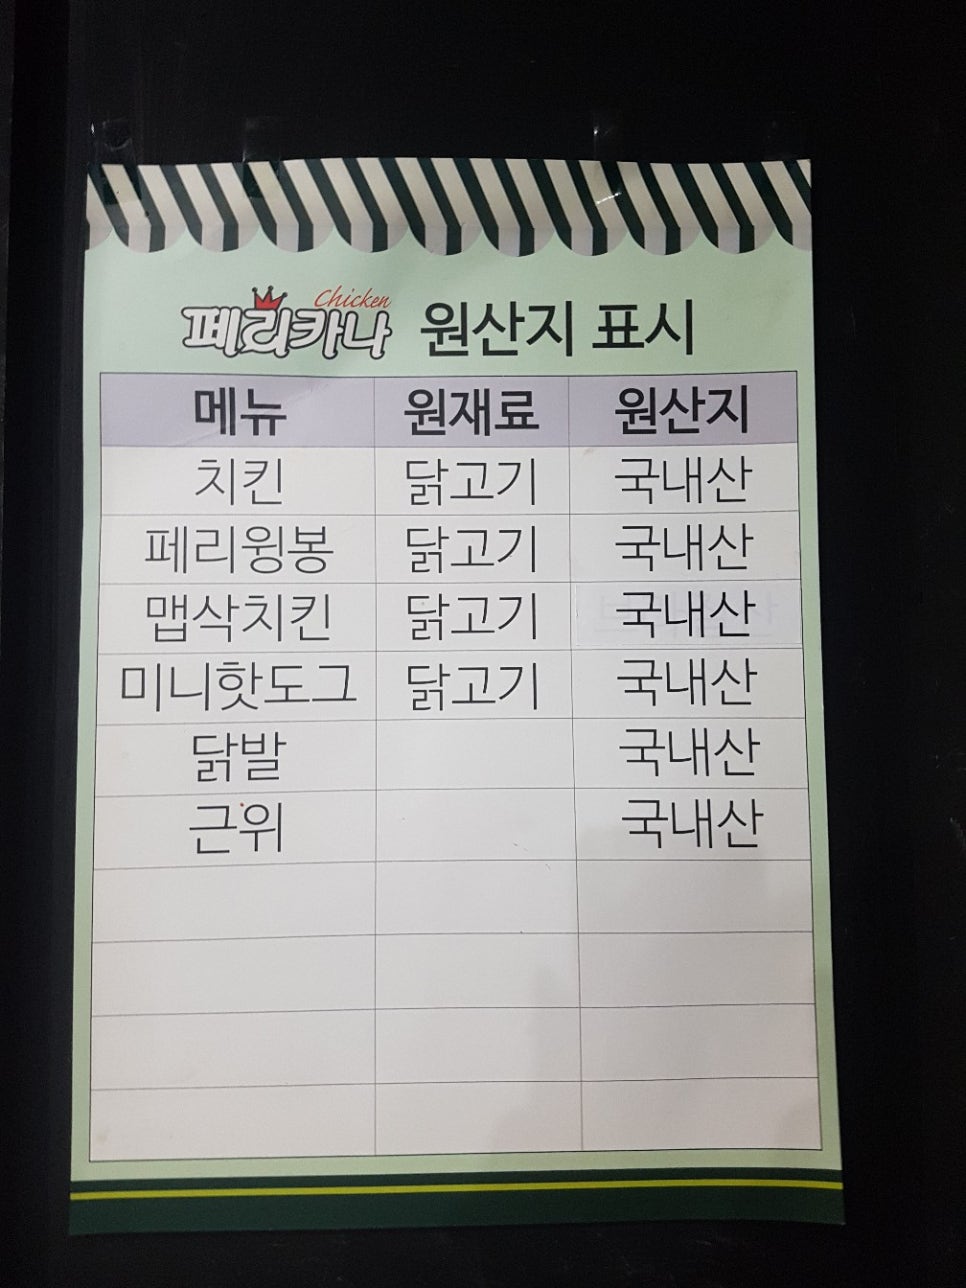 페리카나 Chicken 원산지 표시
메뉴 원재료 원산지
치킨 닭고기 국내산
페리윙봉 닭고기 국내산
맵삭치킨 닭고기 국내산
미니핫도그 닭고기 국내산
닭발 국내산
근위 국내산